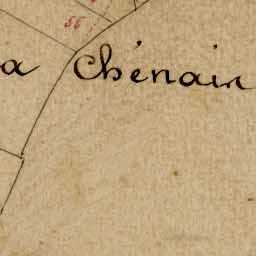 56
a Chénain